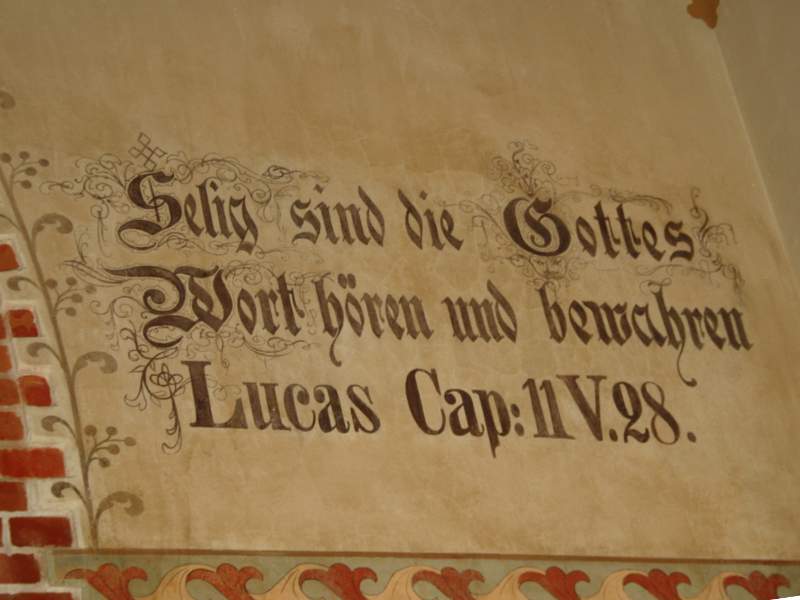 Selig sind die Gottes
Wort hören und bewahren
Lucas Cap: 11 V. 28.